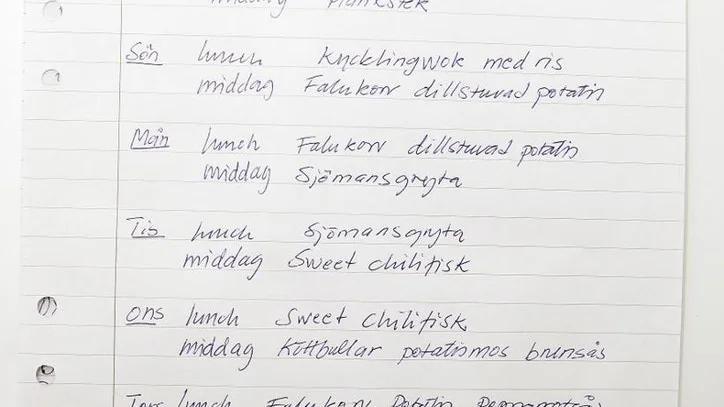 middag Plankstek
Sön lunch Kycklingwok med ris
middag Falukorv dillstuvad potatis
Mån lunch Falukorv dillstuvad potatis
middag Sjömansgryta
Tis lunch Sjömansgryta
middag Sweet chilifisk
Ons lunch Sweet chilifisk
middag Köttbullar potatismos brunsås
Tors lunch Falukorv Potatis